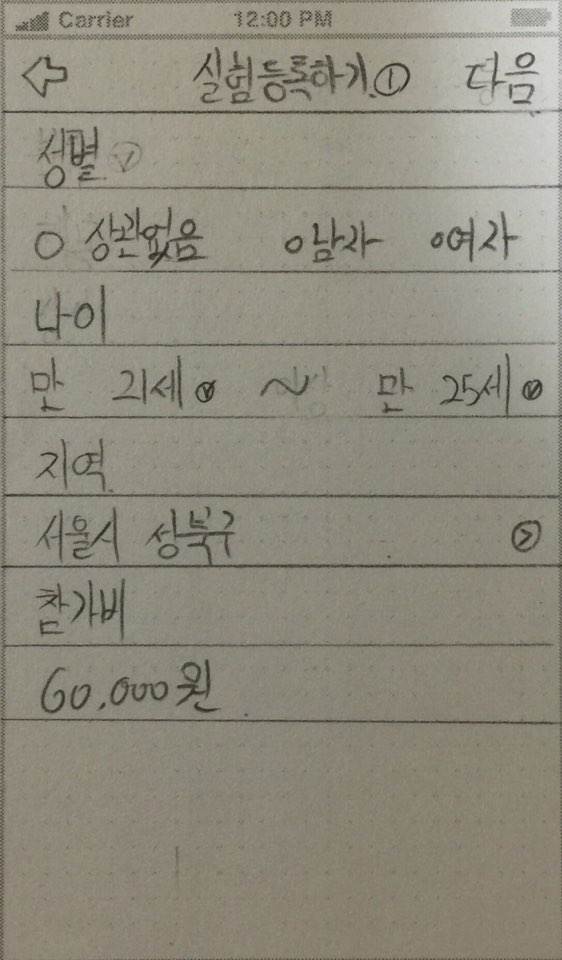 Carrier 12:00 PM
실험등록하기① 다음
성별
상관없음 남자 여자
나이
만 21세 ~ 만 25세
지역
서울시 성북구
참가비
60,000원